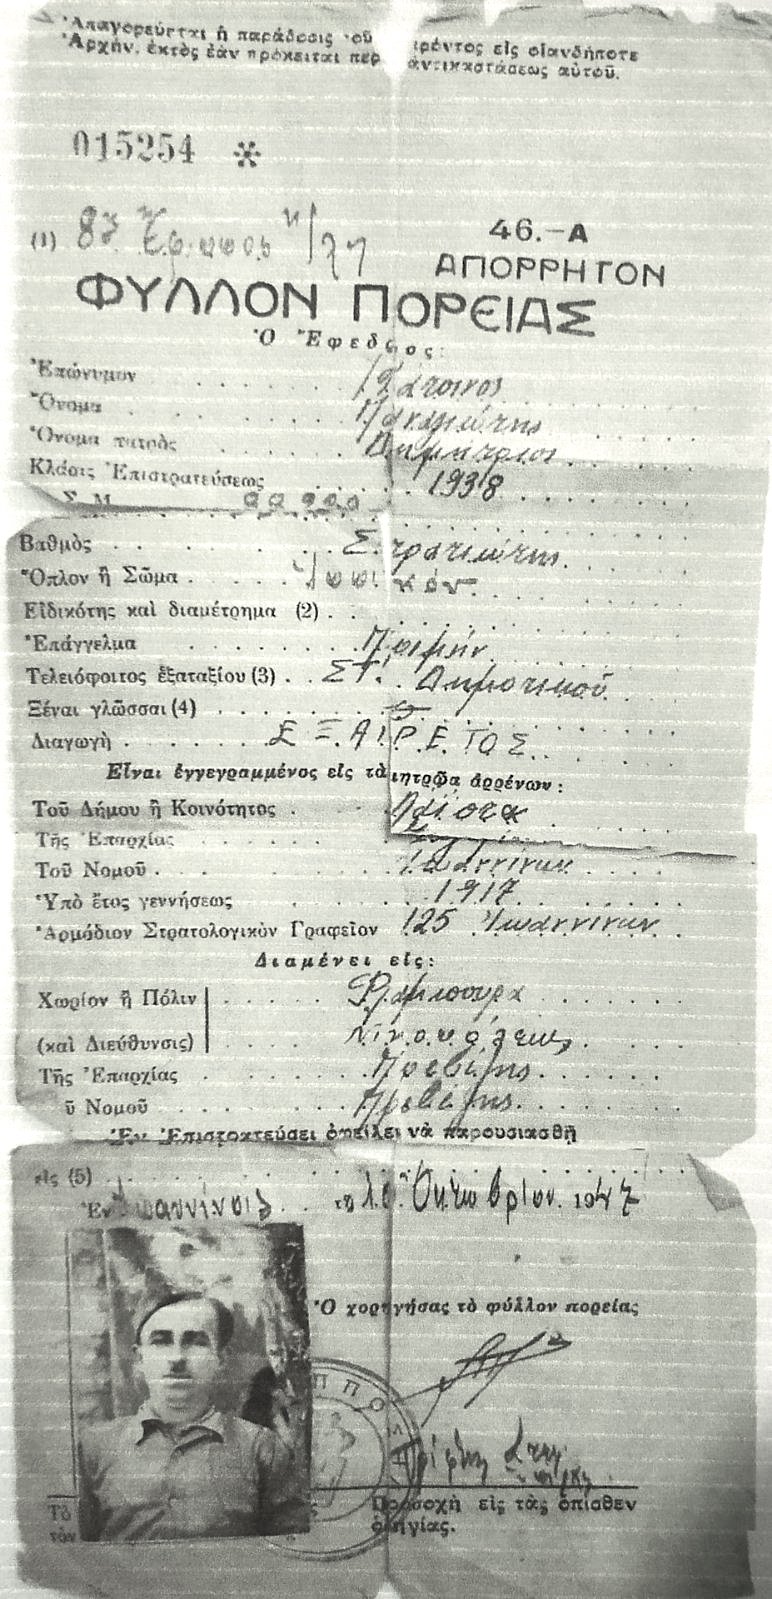 Ἀπαγορεύεται ἡ παράδοσις τοῦ παρόντος εἰς οἱανδήποτε
Ἀρχήν, ἐκτὸς ἐὰν πρόκειται περὶ ἀντικαταστάσεως αὐτοῦ.
015254 *
(1) 8η
46.-Α
ΑΠΟΡΡΗΤΟΝ
ΦΥΛΛΟΝ ΠΟΡΕΙΑΣ
Ὁ Ἔφεδρος:
Ἐπώνυμον
Ὄνομα Παναγιώτης
Ὄνομα πατρὸς Δημήτριος
Κλάσις Ἐπιστρατεύσεως 1938
Σ. Μ.
Βαθμὸς Στρατιώτης
Ὅπλον ἢ Σῶμα Ἱππικόν
Εἰδικότης καὶ διαμέτρημα (2)
Ἐπάγγελμα Ποιμήν
Τελειόφοιτος ἑξαταξίου (3) ΣΤ. Δημοτικοῦ
Ξέναι γλῶσσαι (4)
Διαγωγὴ ΕΞΑΙΡΕΤΟΣ
Εἶναι ἐγγεγραμμένος εἰς τὰ μητρῷα ἀρρένων:
Τοῦ Δήμου ἢ Κοινότητος Λάϊστα
Τῆς Ἐπαρχίας
Τοῦ Νομοῦ Ἰωαννίνων
Ὑπὸ ἔτος γεννήσεως 1917
Ἁρμόδιον Στρατολογικὸν Γραφεῖον 125 Ἰωαννίνων
Διαμένει εἰς:
Χωρίον ἢ Πόλιν Φλάμπουρα
(καὶ Διεύθυνσις) Νικοπόλεως
Τῆς Ἐπαρχίας Πρεβέζης
ῦ Νομοῦ Πρεβέζης
Ἐν Ἐπιστρατεύσει ὀφείλει νὰ παρουσιασθῇ
εἰς (5)
Ἐν Ἰωαννίνοις τῇ 10 Ὀκτωβρίου 1947
Ὁ χορηγήσας τὸ φύλλον πορείας
Προσοχὴ εἰς τὰς ὄπισθεν
ὁδηγίας.
Τὸ
τὸν